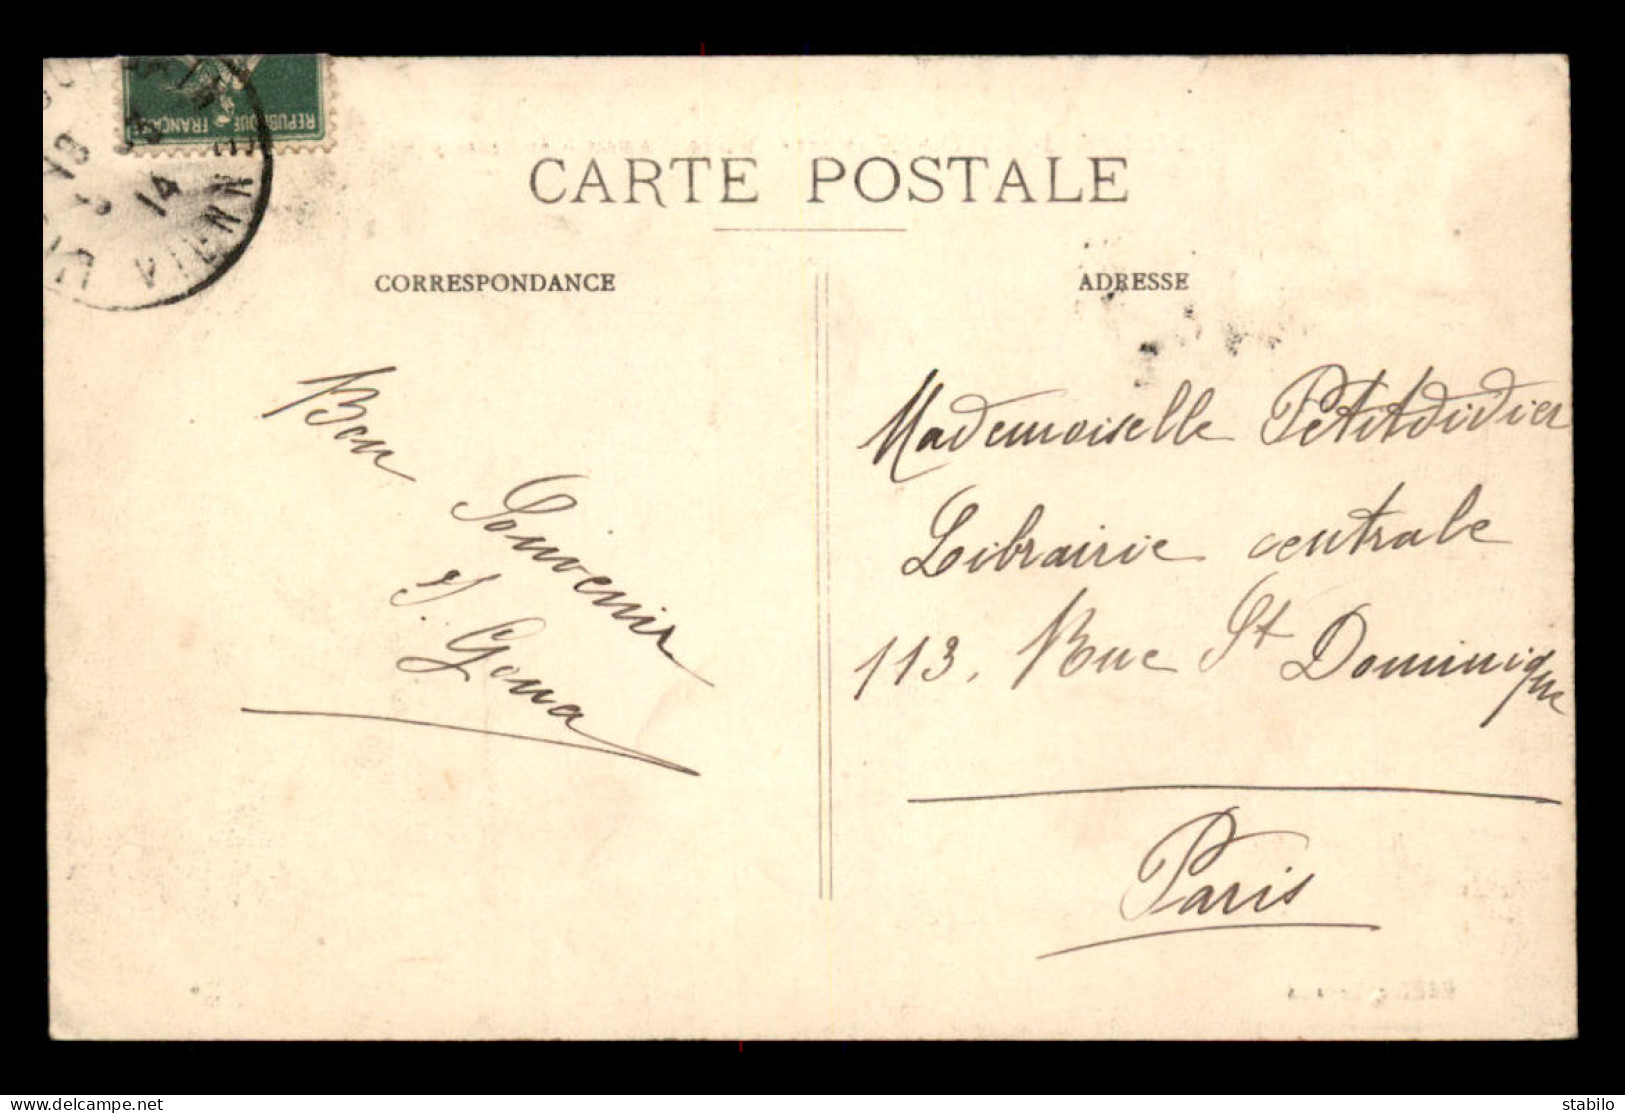 REPUBLIQUE FRANÇAISE
18
14
VIENNE
CARTE POSTALE
CORRESPONDANCE
ADRESSE
Bon
Souvenir
Mademoiselle Petitdidier
Librairie centrale
113, Rue St Dominique
Paris
delcampe.net
stabilo